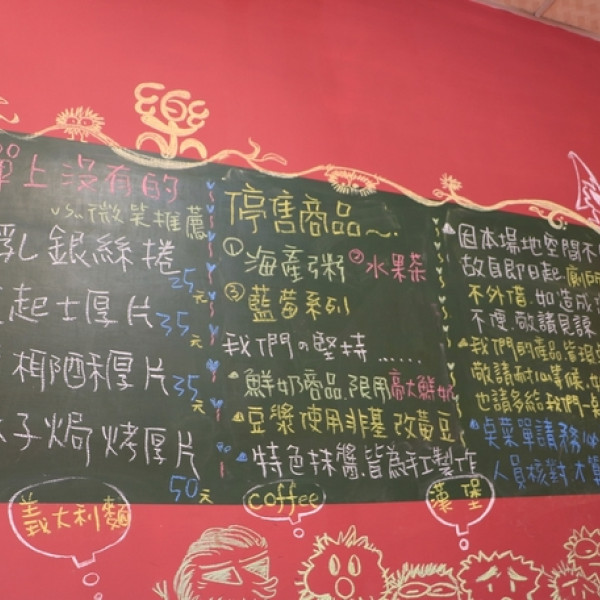 單上沒有的
vs. 微笑推薦
乳銀絲捲
25元
起士厚片
35元
椰酥厚片
35元
子焗烤厚片
50元
停售商品~.
① 海產粥 ② 水果茶
③ 藍莓系列
我們の堅持......
鮮奶商品.限用高大鮮奶
豆漿使用非基改黃豆
特色抹醬.皆為手工製作
因本場地空間不
故自即日起.廁所
不外借.如造成
不便.敬請見諒
我們的產品皆現
敬請耐心等候.如
也請多給我們一
桌菜單請務必
人員核對.才算
義大利麵
coffee
漢堡